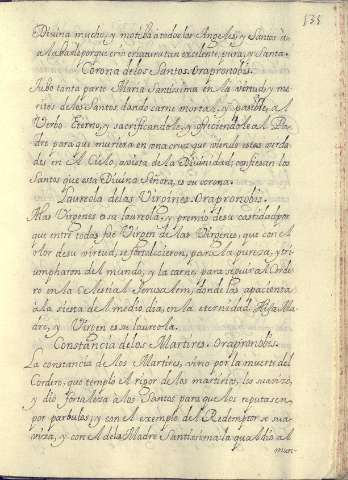 535
Divina mucho, y motiba a todos los Angeles, y Santos à
alabarlo porque crio criatura tan excelente, pura, y Santa.
Corona de los Santos. Ora pro nobis.
Tubo tanta parte Maria Santissima en la virtud, y me
ritos de los Santos dando carne mortal, y pasible, al
Verbo Eterno, y sacrificandole, y ofreciendole al Pa-
dre para que muriera en una cruz que viendo estas verda
des en el Cielo, avista de la Divinidad; confiesan los
Santos que esta Divina Señora, es su corona.
Laureola de las Virgines. Ora pro nobis.
Mas Virgenes es su laureola, y premio de su castidad; por
que entre todas fue Virgen de las Virgenes, que con el
olor de su virtud, se fortalecieron, para la pureza, y tri-
umpharon del mundo, y la carne, para seguir al Corde
ro en la Celestial Jerusalem, donde las apacienta
à la siesta del medio dia, en la eternidad. Hija Ma
dre, y Virgen es su laureola.
Constancia de los Martires. Ora pro nobis.
La constancia de los Martires, vino por la muerte del
Cordero; que templo el rigor de los martirios, los suavizo,
y dio fortaleza a los Santos para que los reputasen
por parbulos; y con el exemplo del Redemptor se sua-
viza, y con el de la Madre Santissima: la qual dio al
mun-